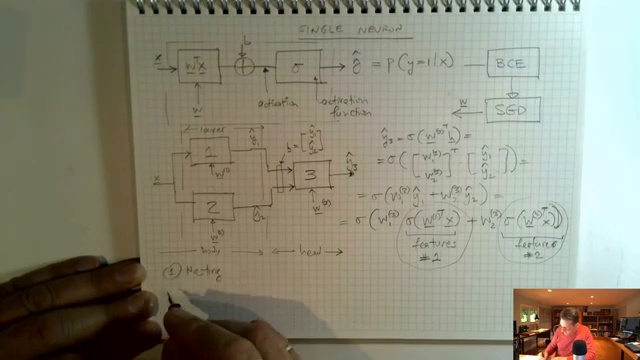 SINGLE NEURON
b
x
wᵀx
σ
ŷ = p(y=1|x)
BCE
w
activation
activation function
w
SGD
layer
ŷ₁
h = [ŷ₁ ŷ₂]
1
w⁽¹⁾
3
ŷ₃
x
2
w⁽³⁾
ŷ₂
w⁽²⁾
body
head
ŷ₃ = σ(w⁽³⁾ᵀ h) =
= σ([w₁⁽³⁾ w₂⁽³⁾]ᵀ [ŷ₁ ŷ₂]) =
= σ(w₁⁽³⁾ ŷ₁ + w₂⁽³⁾ ŷ₂) =
= σ(w₁⁽³⁾ σ(w⁽¹⁾ᵀx) + w₂⁽³⁾ σ(w⁽²⁾ᵀx))
features #2
features #2
(1) Nesting